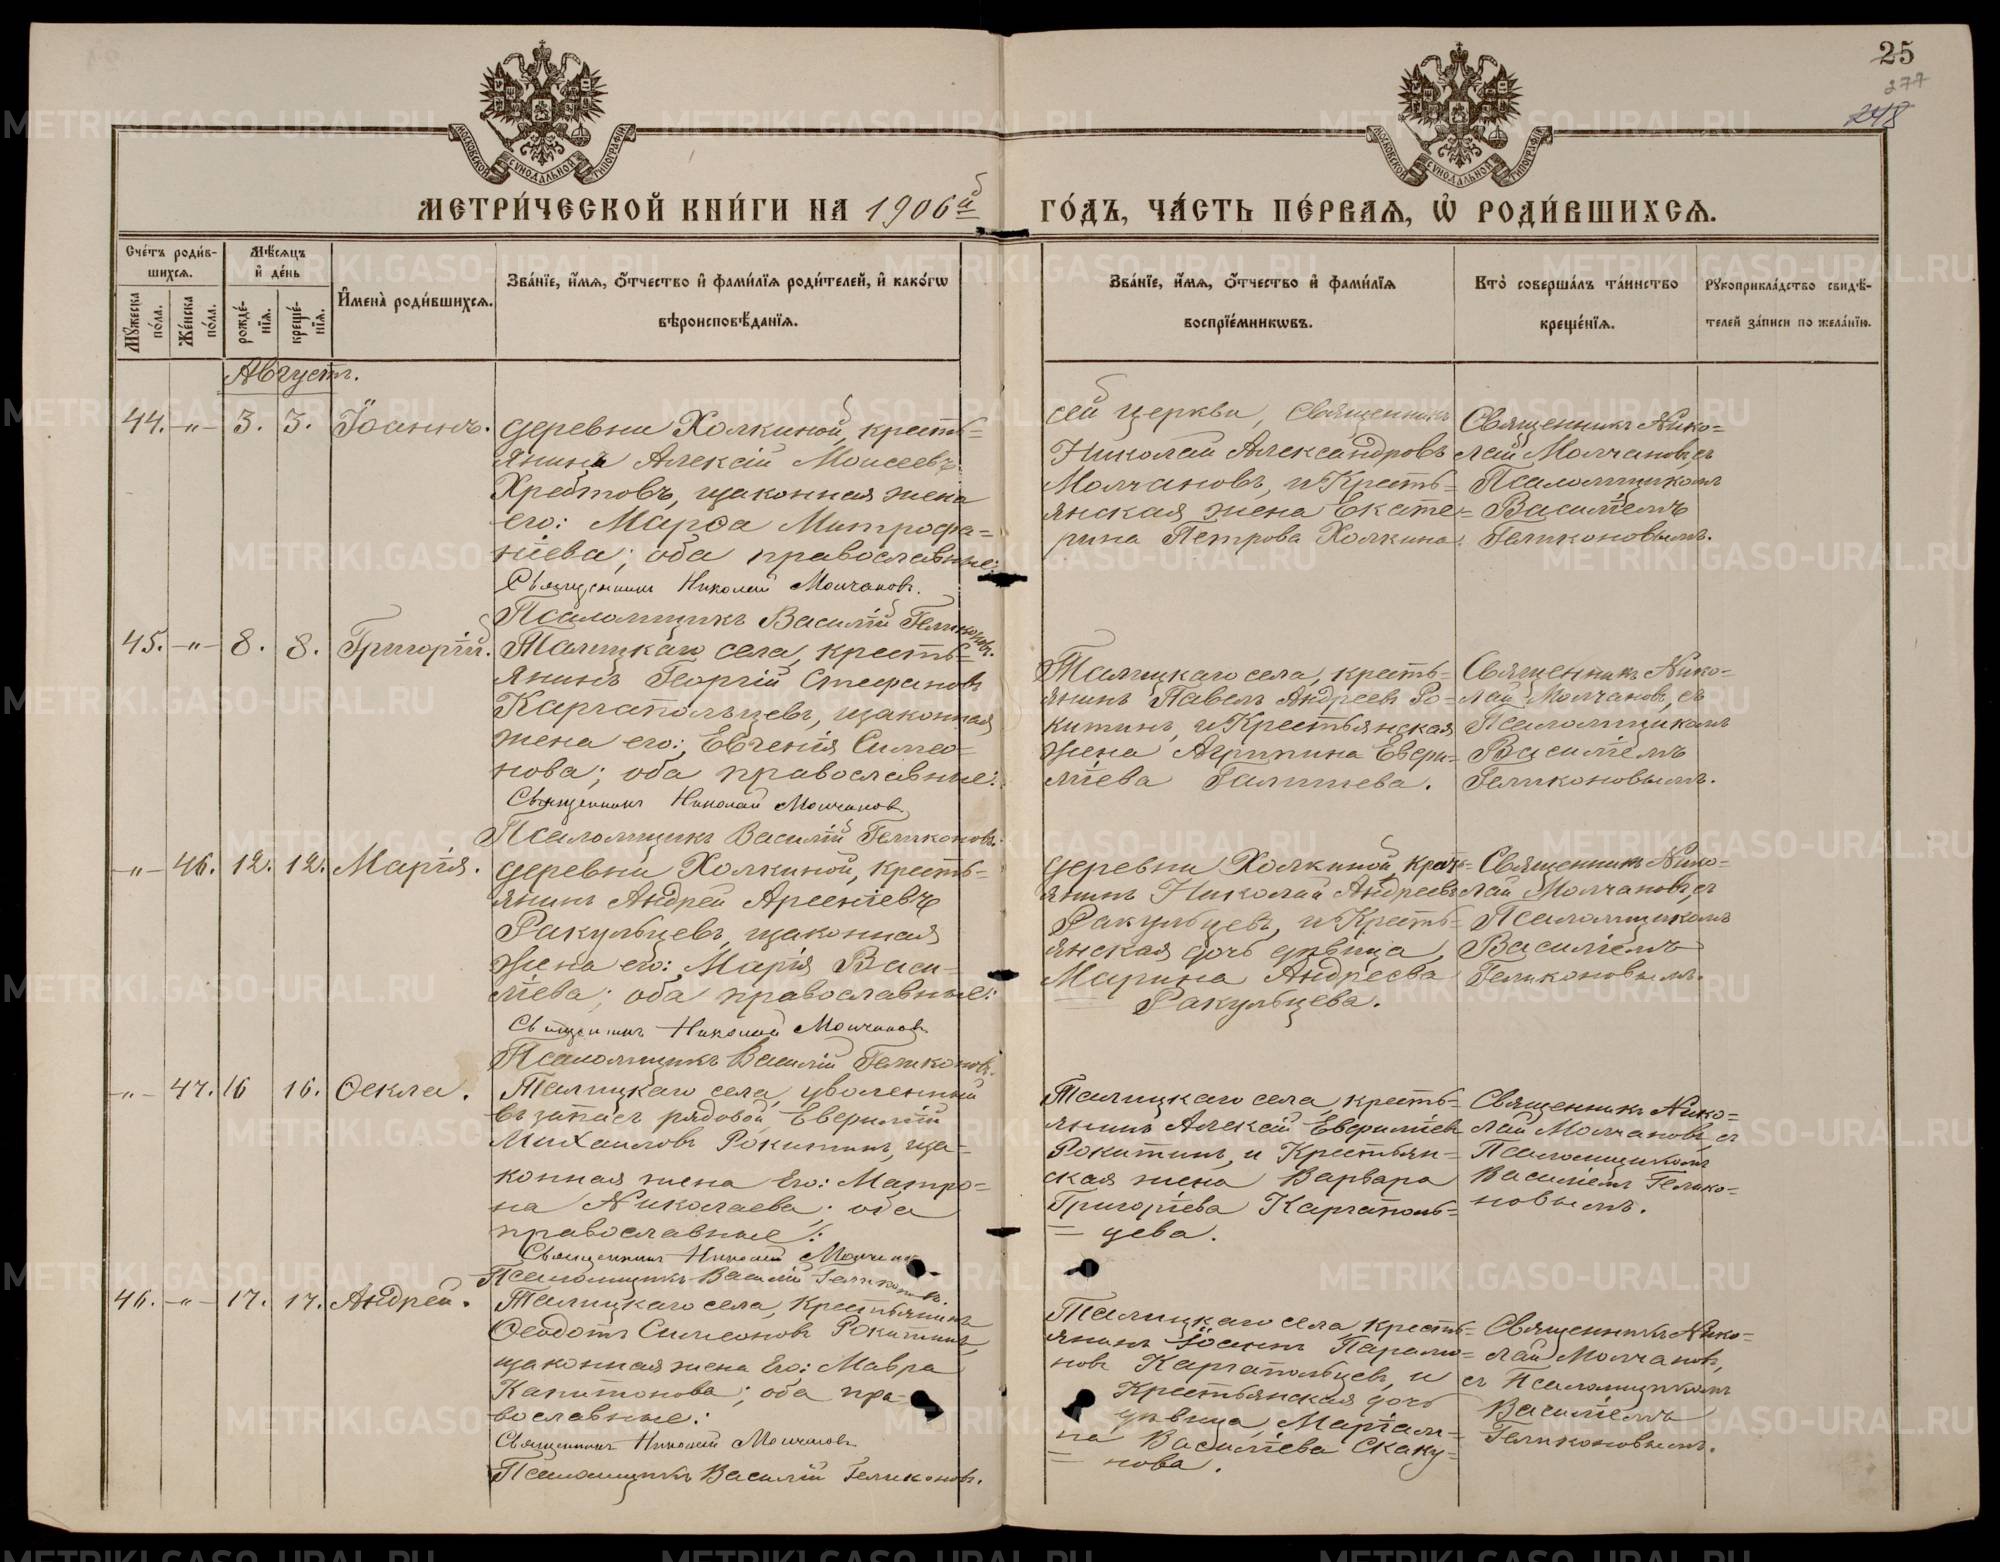 25
277
248
МОСКОВСКОЙ СУНОДАЛЬНОЙ ТИПОГРАФІИ
МОСКОВСКОЙ СУНОДАЛЬНОЙ ТИПОГРАФІИ
МЕТРИ́ЧЕСКОЙ КНИ́ГИ НА 1906й
ГО́ДЪ, ЧА́СТЬ ПЕ́РВАѦ, Ѡ РОДИ́ВШИХСѦ.
Сче́тъ роди́в-
шихсѧ.
Мꙋ́жеска по́ла.
Же́нска по́ла.
Мѣ́сѧцъ
и҆ де́нь
рожде́-
нїѧ.
креще́-
нїѧ.
И҆мена̀ роди́вшихсѧ.
Зва́нїе, и҆́мѧ, ѻ҆́тчество и҆ фами́лїѧ роди́телей, и҆ како́гѡ
вѣроисповѣ́данїѧ.
Зва́нїе, и҆́мѧ, ѻ҆́тчество и҆ фами́лїѧ
воспрїе́мникѡвъ.
Кто̀ соверша́лъ та́инство
креще́нїѧ.
Рꙋкоприкла́дство свидѣ́-
телей за́писи по жела́нїю.
Августъ.
44. -"- 3. 3. Іоаннъ.
деревни Холкиной, кресть=
янинъ Алексій Моисеевъ
Хребтовъ, и законная жена
его: Марѳа Митрофа=
ніева; оба православные:
Священникъ Николай Молчановъ.
Псаломщикъ Василій Геликоновъ.
сей церкви, Священникъ
Николай Александровъ
Молчановъ, и Кресть=
янская жена Екате=
рина Петрова Холкина.
Священникъ Нико=
лай Молчановъ, съ
Псаломщикомъ
Василіемъ
Геликоновымъ.
45. -"- 8. 8. Григорій.
Талицкаго села, кресть=
янинъ Георгій Стефановъ
Каргапольцевъ, и законная
жена его: Евгенія Симео=
нова; оба православные:
Священникъ Николай Молчановъ
Псаломщикъ Василій Геликоновъ.
Талицкаго села, кресть=
янинъ Павелъ Андреевъ Ро=
китинъ, и Крестьянская
жена Агрипина Евери=
міева Галишева.
Священникъ Нико=
лай Молчановъ, съ
Псаломщикомъ
Василіемъ
Геликоновымъ.
-"- 46. 12. 12. Марія.
деревни Холкиной, кресть=
янинъ Андрей Арсеніевъ
Ракульцевъ, и законная
жена его: Марія Васи=
ліева; оба православные:
Священникъ Николай Молчановъ
Псаломщикъ Василій Геликоновъ.
деревни Холкиной, кресть=
янинъ Николай Андреевъ
Ракульцевъ, и Кресть=
янская дочь дѣвица,
Марина Андреева
Ракульцева.
Священникъ Нико=
лай Молчановъ, съ
Псаломщикомъ
Василіемъ
Геликоновымъ.
-"- 47. 16 16. Ѳекла.
Талицкаго села, уволенный
въ запасъ рядовой, Еверимій
Михаиловъ Рокитинъ, и за=
конная жена Его: Матро=
на Николаева; оба
православные:
Священникъ Николай Молчановъ
Псаломщикъ Василій Геликоновъ.
Талицкаго села, кресть=
янинъ Алексій Еверимиевъ
Рокитинъ, и Крестьян=
ская жена Варвара
Григоріева Каргаполь=
= цева.
Священникъ Нико=
лай Молчановъ, съ
Псаломщикомъ
Василіемъ Гелико=
новымъ.
46. -"- 17. 17. Андрей.
Талицкаго села, Крестьянинъ
Ѳеодотъ Симеоновъ Рокитинъ,
и законная жена Его: Мавра
Капитонова; оба пра=
вославные:
Священникъ Николай Молчановъ
Псаломщикъ Василій Геликоновъ.
Талицкаго села кресть=
янинъ Іоаннъ Парамо=
новъ Каргапольцевъ, и
Крестьянская дочь
дѣвица, Маріам=
на Василіева Скаку=
= нова.
Священникъ Нико=
лай Молчановъ,
съ Псаломщикомъ
Василіемъ
Геликоновымъ.
METRIKI.GASO-URAL.RU